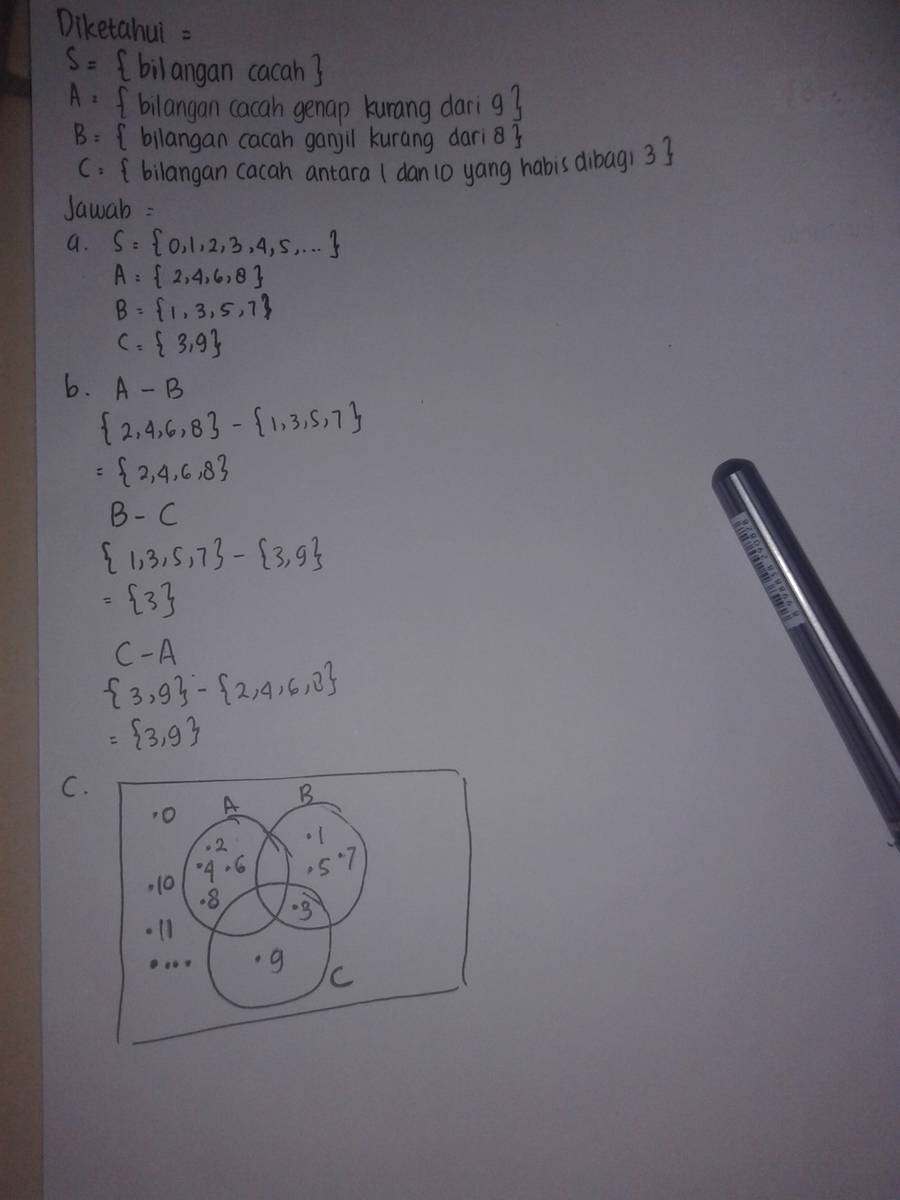 Diketahui =
S = { bilangan cacah }
A = { bilangan cacah genap kurang dari 9 }
B = { bilangan cacah ganjil kurang dari 8 }
C = { bilangan cacah antara 1 dan 10 yang habis dibagi 3 }
Jawab =
a. S = {0,1,2,3,4,5,... }
A = { 2,4,6,8 }
B = {1,3,5,7}
C = { 3,9}
b. A - B
{ 2,4,6,8} - {1,3,5,7 }
= { 2,4,6,8}
B - C
{ 1,3,5,7} - {3,9}
= {3}
C - A
{3,9} - {2,4,6,8}
= {3,9}
C.
A B
.0
.2 .1
.4 .6 .5 .7
.10
.8 .3
.11
....
.9
C